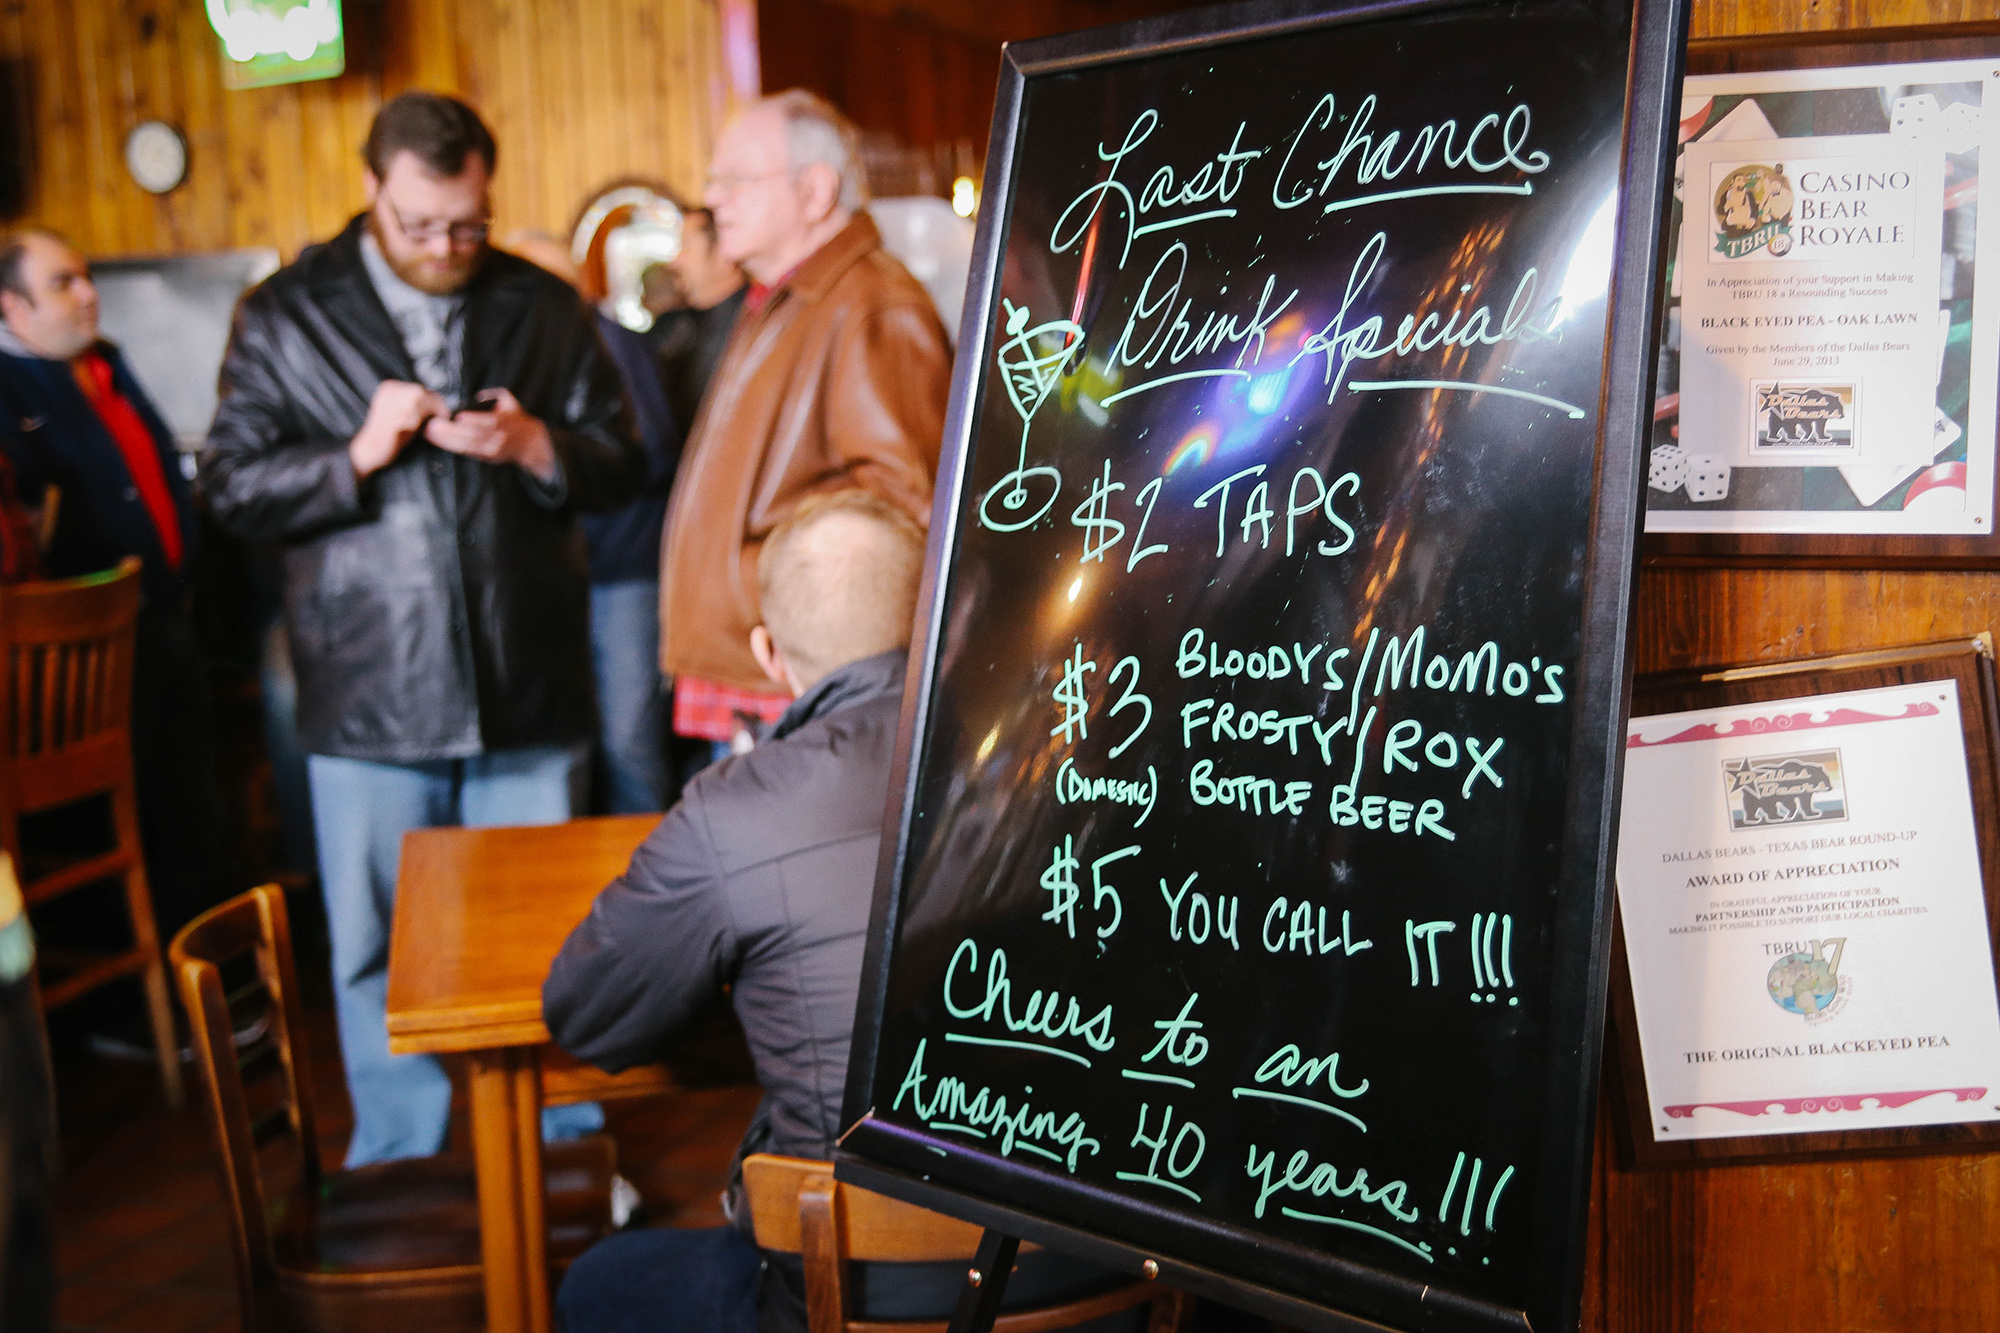 Last Chance
Drink Specials
$2 TAPS
$3 BLOODYS/MOMO'S
FROSTY/ROX
(DOMESTIC) BOTTLE BEER
$5 YOU CALL IT!!!
Cheers to an
Amazing 40 years!!!
TBRU 18
CASINO
BEAR
ROYALE
In Appreciation of your Support in Making
TBRU 18 a Resounding Success
BLACK EYED PEA - OAK LAWN
Given by the Members of the Dallas Bears
June 29, 2013
Dallas
Bears
Dallas
Bears
DALLAS BEARS - TEXAS BEAR ROUND-UP
AWARD OF APPRECIATION
IN GRATEFUL APPRECIATION OF YOUR
PARTNERSHIP AND PARTICIPATION
MAKING IT POSSIBLE TO SUPPORT OUR LOCAL CHARITIES
TBRU 17
THE ORIGINAL BLACKEYED PEA